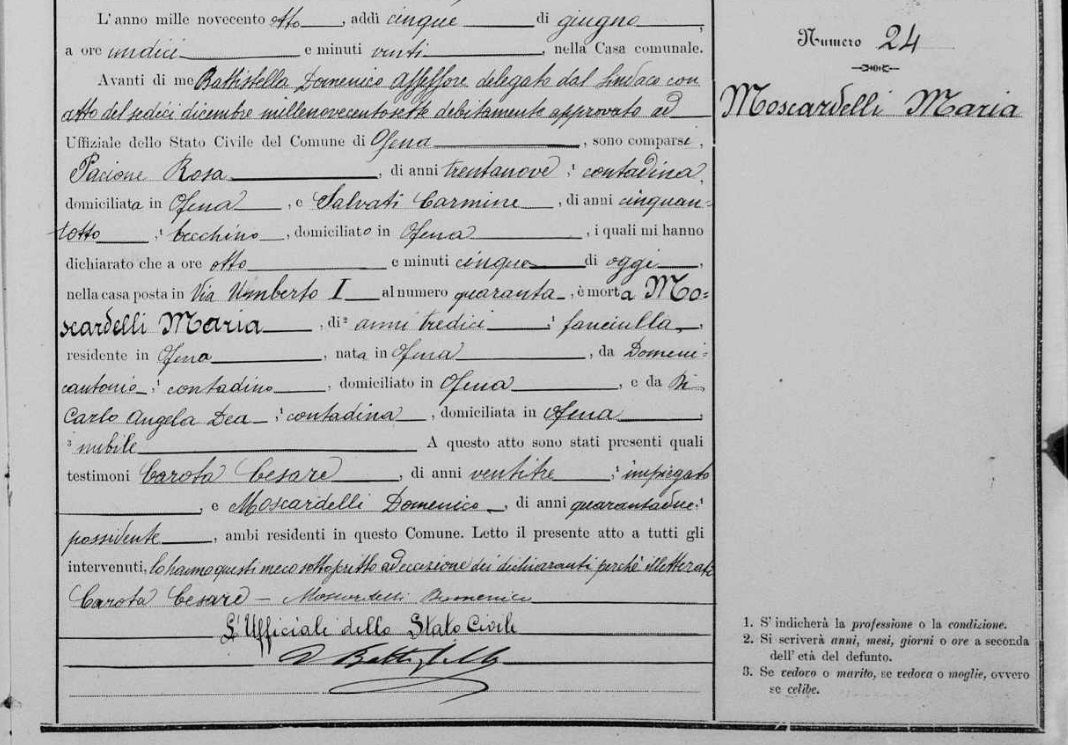 L'anno mille novecento otto, addì cinque di giugno,
a ore undici e minuti venti, nella Casa comunale.
Avanti di me Battistella Domenico Assessore delegato dal Sindaco con
atto del sedici dicembre millenovecentosette debitamente approvato ad
Uffiziale dello Stato Civile del Comune di Ofena, sono comparsi,
Pacione Rosa, di anni trentanove, contadina,
domiciliata in Ofena, e Salvati Carmine, di anni cinquan-
totto, becchino, domiciliato in Ofena, i quali mi hanno
dichiarato che a ore otto e minuti cinque di oggi,
nella casa posta in Via Umberto I al numero quaranta, è morta Mo=
scardelli Maria, di² anni tredici, fanciulla,
residente in Ofena, nata in Ofena, da Domeni=
cantonio, contadino, domiciliato in Ofena, e da Di
Carlo Angela Dea, contadina, domiciliata in Ofena,
³ nubile A questo atto sono stati presenti quali
testimoni Carota Cesare, di anni ventitre, impiegato
, e Moscardelli Domenico, di anni quarantadue,
possidente, ambi residenti in questo Comune. Letto il presente atto a tutti gli
intervenuti, lo hanno questi meco sottoscritto ad eccezione dei dichiaranti perchè illetterati
Carota Cesare – Moscardelli Domenico
L'Ufficiale dello Stato Civile
D Battistella
Numero 24
Moscardelli Maria
1. S' indicherà la professione o la condizione.
2. Si scriverà anni, mesi, giorni o ore a seconda
dell' età del defunto.
3. Se vedovo o marito, se vedova o moglie, ovvero
se celibe.